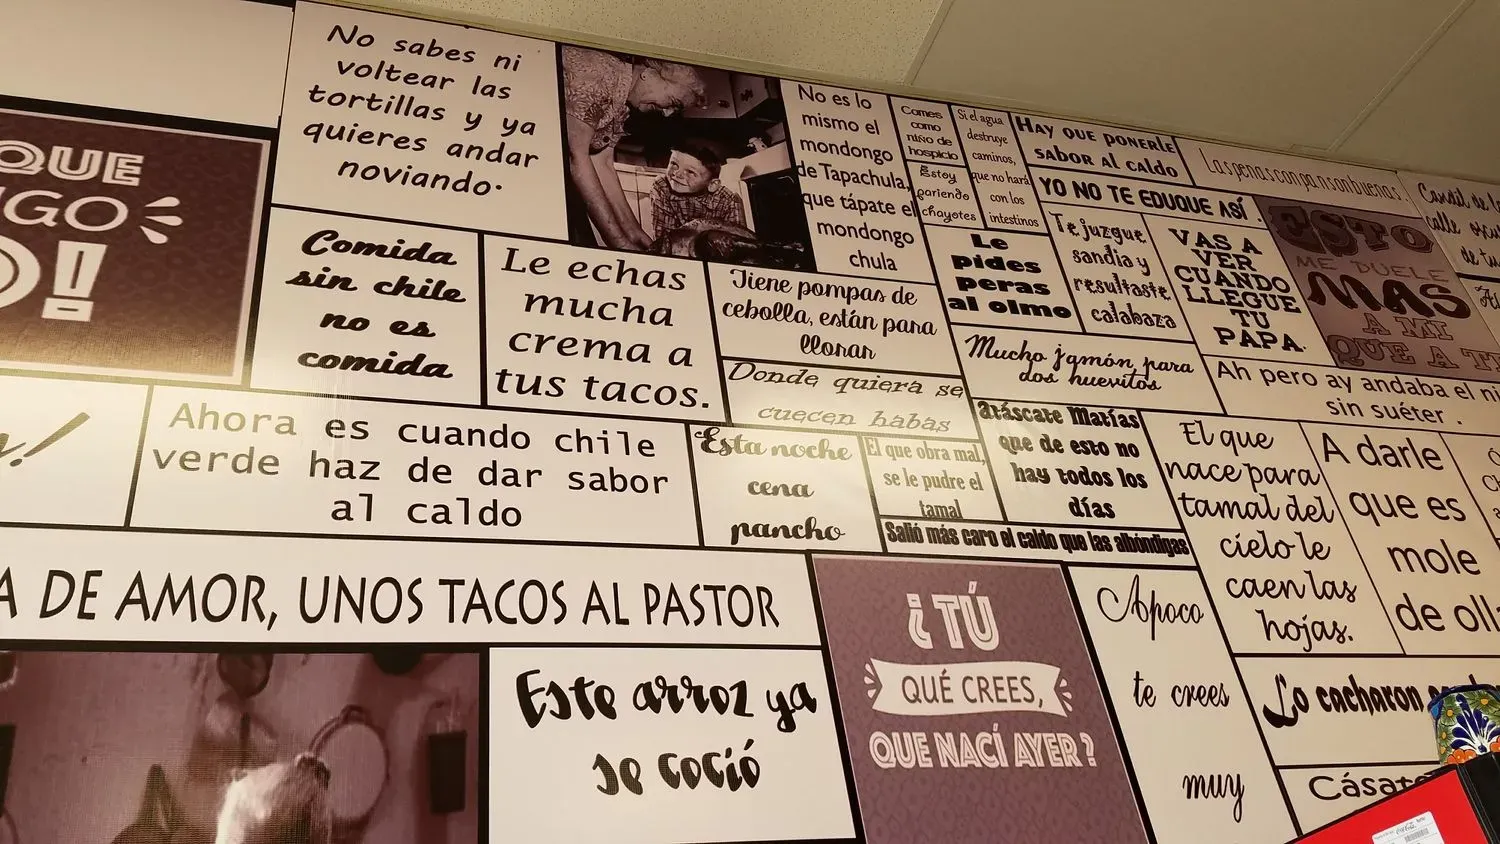 QUE
NGO
O!
No sabes ni
voltear las
tortillas y ya
quieres andar
noviando.
No es lo
mismo el
mondongo
de Tapachula,
que tápate el
mondongo
chula
Comes
como
niño de
hospicio
Si el agua
destruye
caminos,
que no hará
con los
intestinos
HAY QUE PONERLE
SABOR AL CALDO
Las penas con pan son buenas
Estoy
pariendo
chayotes
YO NO TE EDUQUE ASÍ.
calle
de tu
Comida
sin chile
no es
comida
Le echas
mucha
crema a
tus tacos.
Tiene pompas de
cebolla, están para
llorar
Le
pides
peras
al olmo
Te juzgue
sandia y
resultaste
calabaza
VAS A
VER
CUANDO
LLEGUE
TU
PAPA.
ESTO
ME DUELE
MAS
A MI
QUE A TI
Donde quiera se
cuecen habas
Mucho jamón para
dos huevitos
Ah pero ay andaba el ni
sin suéter.
Ahora es cuando chile
verde haz de dar sabor
al caldo
Esta noche
cena
pancho
El que obra mal,
se le pudre el
tamal
Atáscate Matías
que de esto no
hay todos los
días
Salió más caro el caldo que las albóndigas
El que
nace para
tamal del
cielo le
caen las
hojas.
A darle
que es
mole
de olla
A DE AMOR, UNOS TACOS AL PASTOR
Este arroz ya
se coció
¿TÚ
QUÉ CREES,
QUE NACÍ AYER?
Apoco
te crees
muy
Lo cacharon
Cásate
Coca-Cola